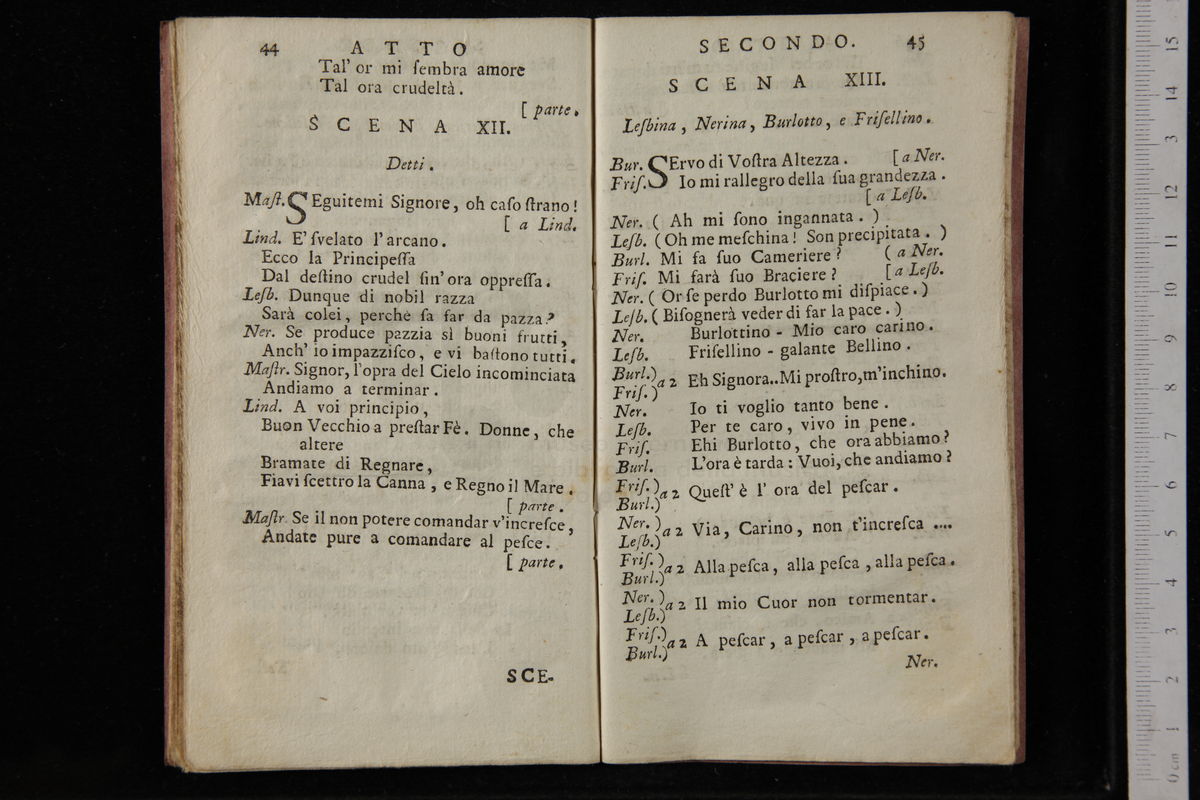 44 ATTO
Tal' or mi ſembra amore
Tal ora crudeltà.
[ parte.
SCENA XII.
Detti.
Maſt. SEguitemi Signore, oh caſo ſtrano!
[ a Lind.
Lind. E' ſvelato l'arcano.
Ecco la Principeſſa
Dal deſtino crudel ſin' ora oppreſſa.
Leſb. Dunque di nobil razza
Sarà colei, perchè ſa far da pazza?
Ner. Se produce pazzia sì buoni frutti,
Anch' io impazziſco, e vi baſtono tutti.
Maſtr. Signor, l'opra del Cielo incominciata
Andiamo a terminar.
Lind. A voi principio,
Buon Vecchio a preſtar Fè. Donne, che
altere
Bramate di Regnare,
Fiavi ſcettro la Canna, e Regno il Mare.
[ parte.
Maſtr. Se il non potere comandar v'increſce,
Andate pure a comandare al peſce.
[ parte.
SCE-
SECONDO. 45
SCENA XIII.
Leſbina, Nerina, Burlotto, e Friſellino.
Bur. SErvo di Voſtra Altezza. [ a Ner.
Friſ. Io mi rallegro della ſua grandezza.
[ a Leſb.
Ner. ( Ah mi ſono ingannata. )
Leſb. ( Oh me meſchina! Son precipitata. )
Burl. Mi fa ſuo Cameriere? ( a Ner.
Friſ. Mi farà ſuo Braciere? [ a Leſb.
Ner. ( Or ſe perdo Burlotto mi diſpiace. )
Leſb. ( Biſognerà veder di far la pace. )
Ner. Burlottino - Mio caro carino.
Leſb. Friſellino - galante Bellino.
Burl.) a 2 Eh Signora..Mi proſtro, m'inchino.
Friſ. )
Ner. Io ti voglio tanto bene.
Leſb. Per te caro, vivo in pene.
Friſ. Ehi Burlotto, che ora abbiamo?
Burl. L'ora è tarda: Vuoi, che andiamo?
Friſ. ) a 2 Queſt' è l' ora del peſcar.
Burl.)
Ner. ) a 2 Via, Carino, non t'increſca ....
Leſb.)
Friſ. ) a 2 Alla peſca, alla peſca, alla peſca.
Burl.)
Ner. ) a 2 Il mio Cuor non tormentar.
Leſb.)
Friſ.) a 2 A peſcar, a peſcar, a peſcar.
Burl.)
Ner.
15
14
13
12
11
10
9
8
7
6
5
4
3
2
1
0 cm